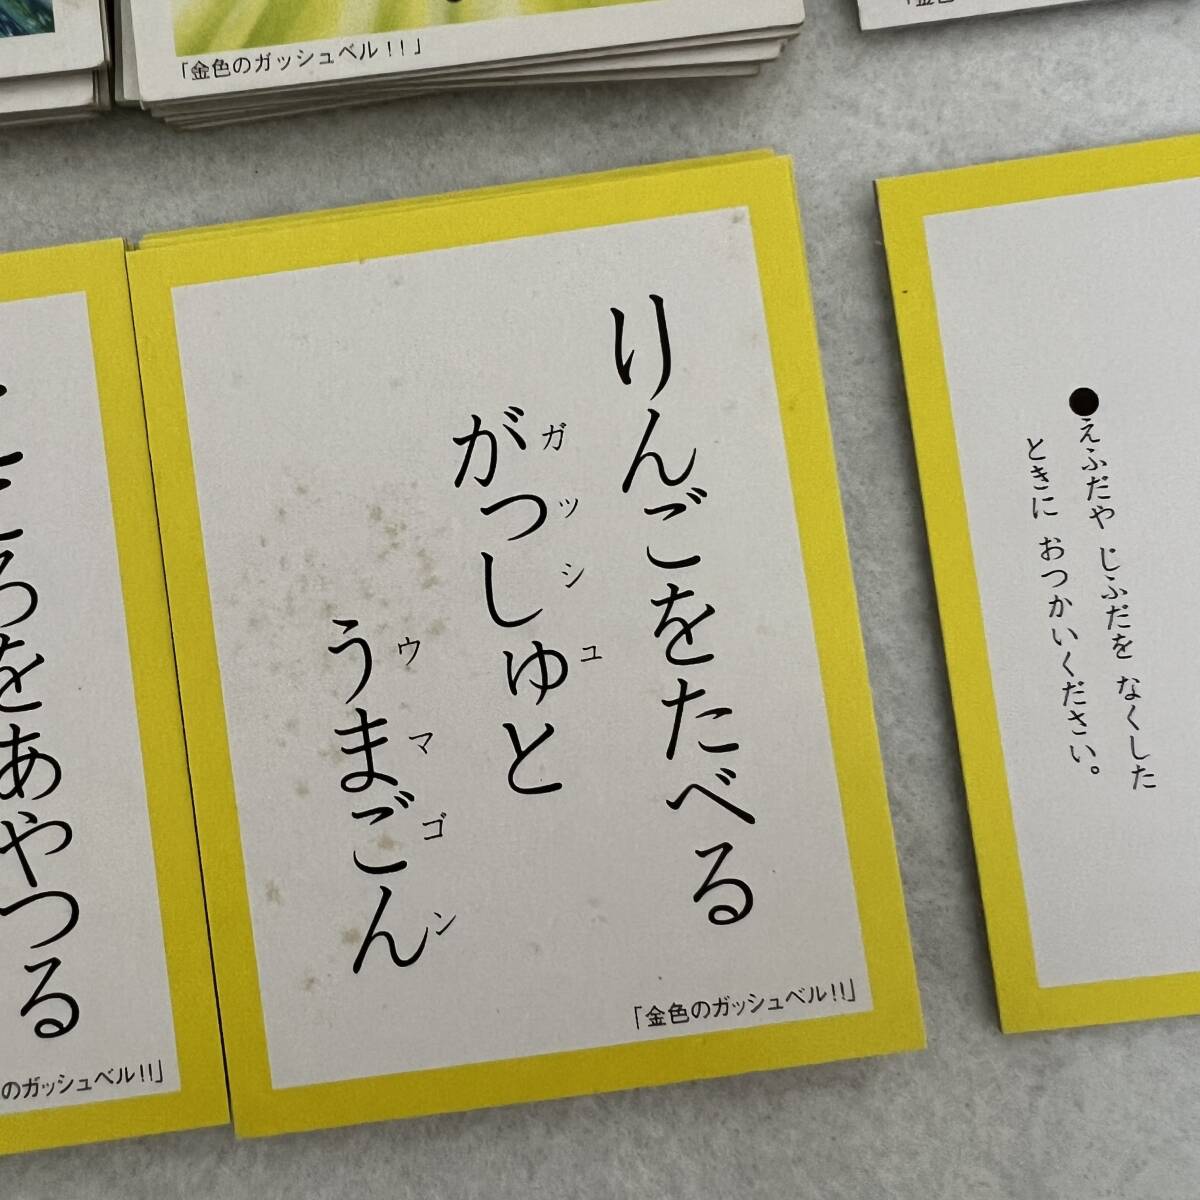 「金色のガッシュベル!!」
りんごをたべる
がっしゅと
ガッシュ
うまごん
ウマゴン
「金色のガッシュベル!!」
●えふだや じふだを なくした
ときに おつかいください。
ころをあやつる
のガッシュベル!!」
「金色の